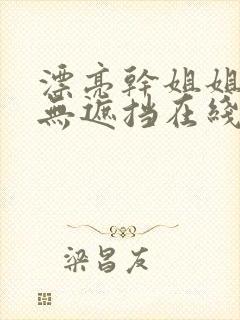 漂亮幹姐姐
無遮挡在綫
梁昌友